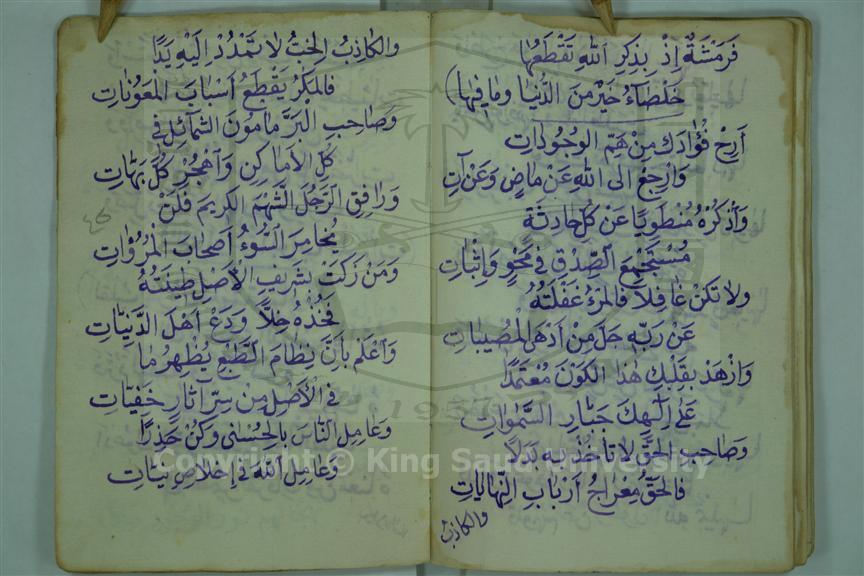 فَرَمْشَةٌ إِذْ بِذِكْرِ اللهِ تَقْطَعُهَا
خَلْصَاءُ خَيْرٌ مِنَ الدُّنْيَا وَمَا فِيهَا)
أَرِحْ فُؤَادَكَ مِنْ هَمِّ الوُجُودَاتِ
وَارْجِعْ الى اللهِ عَنْ مَاضٍ وَعَنْ آتِ
وَأذْكُرْهُ مُنْطَوِيًا عَنْ كُلِّ حَادِثَةٍ
مُسْتَجْمِعَ الصِّدْقِ فِي مَحْوٍ وَإِثْبَاتِ
وَلا تَكُنْ غَافِلاً فَالمَرْءُ غَفْلَتُهُ
عَنْ رَبِّهِ جَلَّ مِنْ أَدْهَى الْمُصِيبَاتِ
وَازْهَدْ بِقَلْبِكَ هٰذَا الكَوْنَ مُعْتَمِدًا
عَلَى إِلٰهِكَ جَبَّارِ السَّمٰوَاتِ
وَصَاحِبِ الحَقَّ لَا تَأْخُذْ بِهِ بَدَلًا
فَالحَقُّ مِعْرَاجُ أَرْبَابِ النِّهَايَاتِ
وَالكَاذِبُ
وَالكَاذِبُ الخِبُّ لَا تَمْدُدْ إِلَيْهِ يَدًا
فَالمَكْرُ يَقْطَعُ أَسْبَابَ الْمَعُونَاتِ
وَصَاحِبِ البَرَّ مَأمُونَ الشَّمَآئِلِ فِي
كُلِّ الأَمَاكِنِ وَأهْجُرْ كُلَّ بَهَّاتِ
وَرَافِقِ الرَّجُلَ الشَّهْمَ الكَرِيمَ فَلَنْ
يُخَامِرَ السُّوءُ أَصْحَابَ المُرُوَّاتِ
وَمَنْ زَكَتْ بِشَرِيفِ الأَصْلِ طِينَتُهُ
فَخُذْهُ خِلاًّ وَدَعْ أَهْلَ الدَّنِيَّاتِ
وَأعْلَم بِأَنَّ نِظَامَ الطَّبْعِ يُظْهِرُ مَا
فِي الْأَصْلِ مِنْ سِرِّ آثَارٍ خَفِيَّاتِ
وَعَامِلِ النَّاسَ بِالحُسْنٰى وَكُنْ حَذِرًا
وَعَامِلِ اللهَ فِي إِخْلَاصِ نِيَّاتِ
Copyright © King Saud University
1957